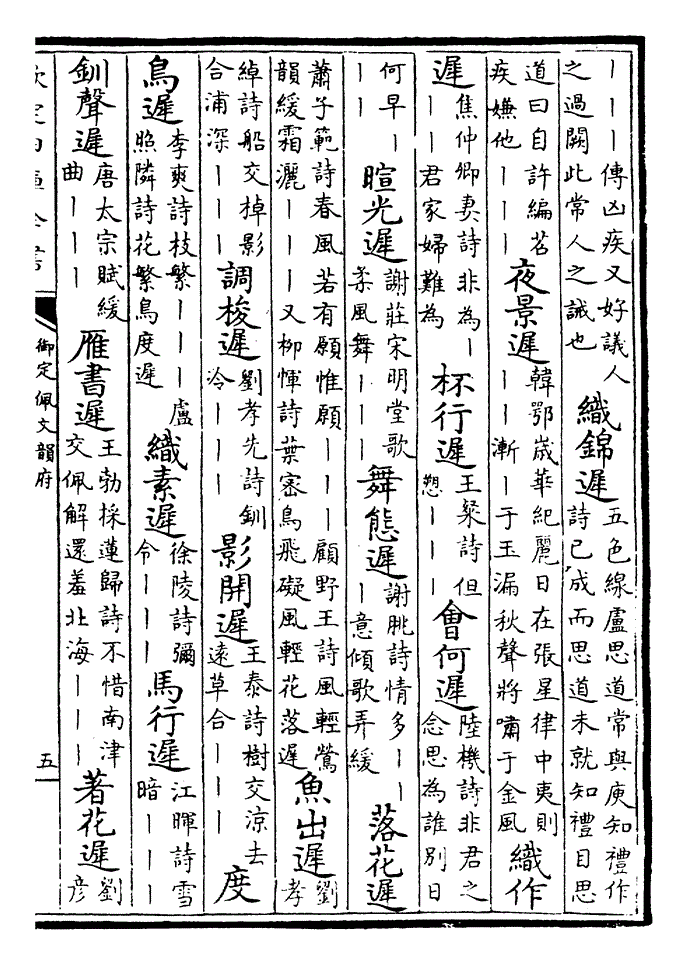 丨丨丨傳凶疾又好議人
之過闕此常人之誡也
織錦遲
五色線盧思道常與庾知禮作
詩已成而思道未就知禮目思
道曰自許編苫
疾嫌他丨丨丨
夜景遲
韓鄂歲華紀麗日在張星律中夷則
丨丨漸丨于玉漏秋聲將嘯于金風
織作
遲
焦仲卿妻詩非為丨
丨丨君家婦難為
杯行遲
王粲詩但
愬丨丨丨
會何遲
陸機詩非君之
念思為誰別日
何早丨
丨丨
暄光遲
謝莊宋明堂歌
柔風舞丨丨丨
舞態遲
謝朓詩情多丨丨
丨意傾歌弄緩
落花遲
蕭子範詩春風若有願惟願丨丨丨顧野王詩風輕鶯
韻緩霜灑丨丨丨又柳惲詩葉密鳥飛礙風輕花落遲
魚出遲
劉
孝
綽詩船交棹影
合浦深丨丨丨
調梭遲
劉孝先詩釧
泠丨丨丨
影開遲
王泰詩樹交涼去
遠草合丨丨丨
度
鳥遲
李爽詩枝繁丨丨丨盧
照隣詩花繁鳥度遲
織素遲
徐陵詩彌
令丨丨丨
馬行遲
江暉詩雪
暗丨丨丨
釧聲遲
唐太宗賦緩
曲丨丨丨
雁書遲
王勃採蓮歸詩不惜南津
交佩解還羞北海丨丨丨
著花遲
劉
彥
欽定四庫全書
御定佩文韻府
五